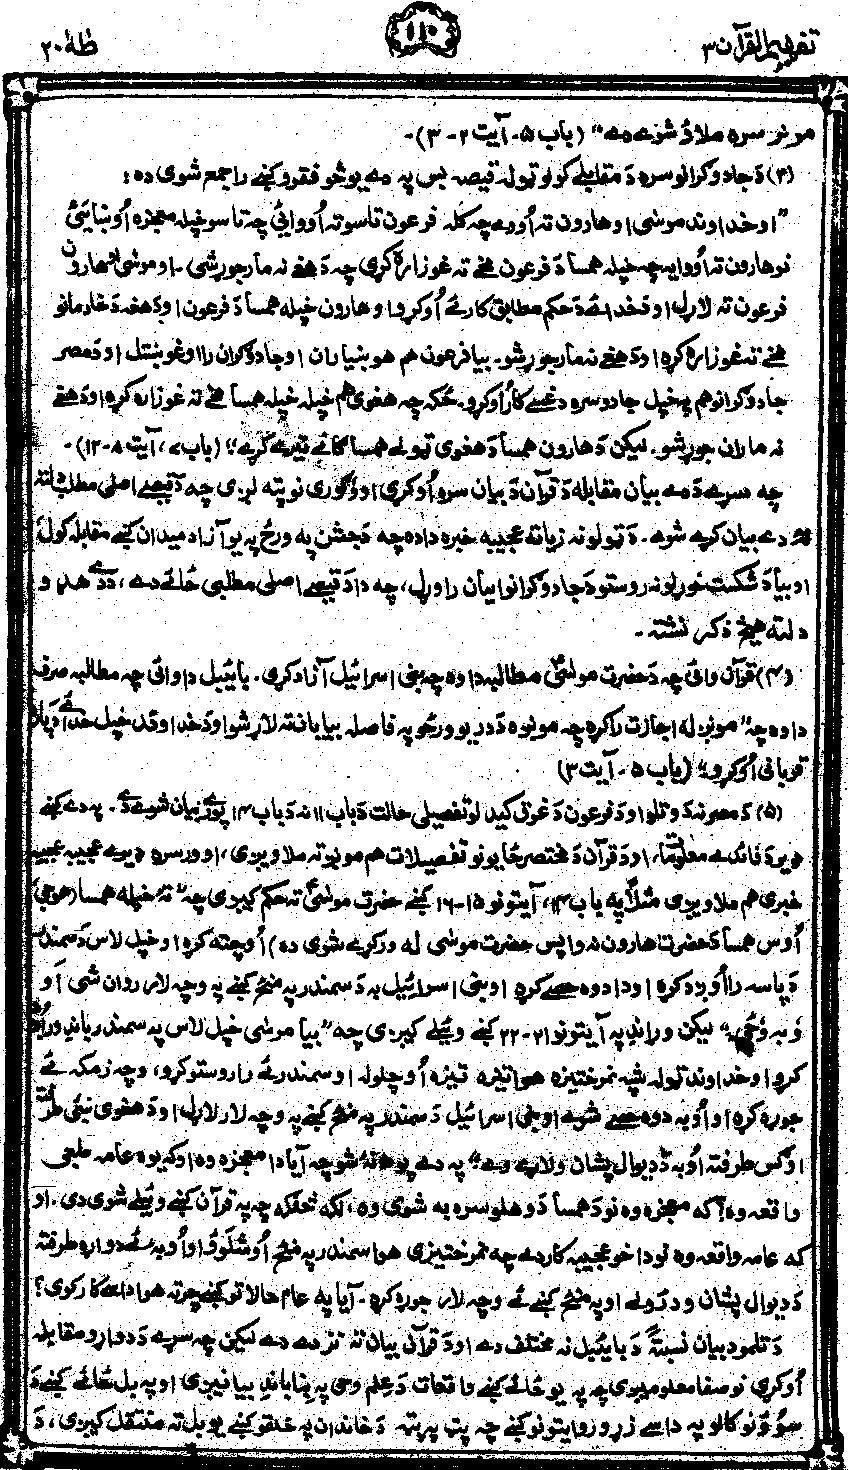 تفهیم القرآن ۳
۱۱۰
طٰهٰ ۲۰
مونږ سره ملاؤ شوے دے" (باب ۵ - آیت ۲ - ۳) -
(۳) دَ جادوګرانو سره دَ مقابلے کولو ټوله قیصه بس په دے یو څو فقرو کښے راجمع شوی ده :
"او خداوند موسٰی او هارون ته اُووے چه کله فرعون تاسو ته اُووائی چه تاسو خپله معجزه اُوښیائی
نو هارون ته اُووایه چه خپله همسا دَ فرعون مخے ته غوزاره کړی چه دَ هغے نه مار جوړ شی - او موسٰی او هارون
فرعون ته لاړل او دَ خدائے دَ حکم مطابق کار ئے اُوکړو او هارون خپله همسا دَ فرعون او دَ هغه دَ خادمانو
مخے ته غوزاره کړه او دَ هغے نه مار جوړ شو - بیا فرعون هم هوښیاران او جادوګران راوغوښتل او دَ مصر
جادوګرانو هم په خپل جادو سره دغسے کار اُوکړو - ځکه چه هغوی هم خپله خپله همسا مخے ته غوزاره کړه او دَ هغے
نه ماران جوړ شو - لیکن دَ هارون همسا دَ هغوی ټولے همساګانے تیرے کړے" (باب ۷، آیت ۸-۱۲) -
چه سړے دَ دے بیان مقابله دَ قرآن دَ بیان سره اُوکړی او اُوګوری نو پته لږی چه دَ قیصے اصلی مطلب دلته
دے بیان کړے شوے - دَ ټولو نه زیاته عجیبه خبره دا ده چه دَ جشن په ورځ په یو آزاد میدان کښے مقابله کول
او بیا دَ شکست خوړلو نه روستو دَ جادوګرانو ایمان راوړل، چه دا دَ قیصے اصلی مطلبی ځائے دے، دَ دے هډو
دلته هیڅ ذکر نشته -
(۴) قرآن وائی چه دَ حضرت موسٰیؑ مطالبه دا وه چه بنی اسرائیل آزاد کړی - بائیبل دا وائی چه مطالبه صرف
دا وه چه "مونږ له اجازت راکړه چه مونږ دَ دریو ورځو په فاصله بیابان ته لاړ شو او دَ خداوند خپل خدائے
قربانی اُوکړو" (باب ۵ - آیت ۳)
(۵) دَ مصر نه دَ وتلو او دَ فرعون دَ غرق کیدلو تفصیلی حالت دَ باب ۱۱ نه دَ باب ۱۴ پورے بیان شوے دے - په دے کښے
ډیر دَ فائدے معلومات، او دَ قرآن دَ مختصر ځایونو تفصیلات هم مونږ ته ملاویږی، او ورسره ډیرے عجیبه عجیبه
خبرې هم ملاویږی مثلاً په باب ۱۴، آیتونو ۱۵-۱۶ کښے حضرت موسٰیؑ ته حکم کیږی چه "ته خپله همسا (هو جی
اُوس همسا دَ حضرت هارون نه واپس حضرت موسٰی له ورکړے شوی ده) اُوچته کړه او خپل لاس دَ سمندر
دَ پاسه را اُوږد کړه او دا دوه حصے کړه او بنی اسرائیل به دَ سمندر په منځ کښے په وچه لاړ روان شی او
وَبه وُځی" لیکن وړاندے په آیتونو ۲۱-۲۲ کښے وئیلے کیږی چه "بیا موسٰی خپل لاس په سمندر باندے
کړو او خداوند ټوله شپه نمرختیزه هوا تیزه اُوچلوله او سمندر ئے راروستو کړو، وچه زمکه ئے
جوړه کړه او اُوبه دوه حصے شوے او بنی اسرائیل دَ سمندر په منځ کښے په وچه لاړ لاړل او دَ هغوی ښئ طرفته
او ګس طرفته اُوبه دَ دیوال پشان ولاړے وے" په دے پوهه نه شو چه آیا دا معجزه وه او که یوه عامه طبعی
واقعه وه؟ که معجزه وه نو دَ همسا دَ وهلو سره به شوی وه، لکه څنګه چه په قرآن کښے وئیلے شوی دی - او
که عامه واقعه وه نو دا خو عجیبه کار دے چه نمرختیزی هوا سمندر په منځ اُوشلوؤ او اُوبه ئے دواړه طرفته
دَ دیوال پشان ودرولے او په منځ کښے ئے وچه لاړ جوړه کړه - آیا په عام حالاتو کښے چرته هوا داسے کار کوی؟
دَ تلمود بیان نسبتاً دَ بائیبل نه مختلف دے او دَ قرآن بیان ته نزدے دے لیکن چه سړے دَ دواړو مقابله
اُوکړی نو صفا معلومیږی چه په یو ځائے کښے واقعات دَ علم وحی په بنا باندے بیانیږی او په بل ځائے کښے دَ
سوؤنو کالو په داسے زړو روایتونو کښے چه پټ په پټه دَ خاندان په خلقو کښے یو بل ته منتقل کیږی، دَ